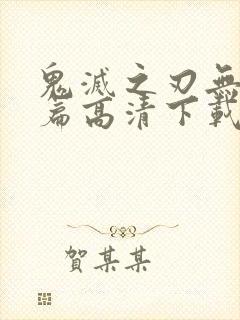 鬼滅之刃無
篇高清下載
賀某某